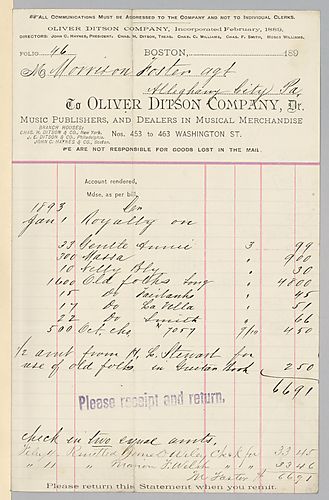 ALL COMMUNICATIONS MUST BE ADDRESSED TO THE COMPANY AND NOT TO INDIVIDUAL CLERKS.
OLIVER DITSON COMPANY, Incorporated February, 1889.
DIRECTORS: JOHN C. HAYNES, PRESIDENT. CHAS. H. DITSON, TREAS. CHAS. C. WILLIAMS, CHAS. F. SMITH, MOSES WILLIAMS.
FOLIO 46 BOSTON, 189
M Morrison Foster agt
Alleghany City Pa
To OLIVER DITSON COMPANY, Dr.
MUSIC PUBLISHERS, AND DEALERS IN MUSICAL MERCHANDISE
BRANCH HOUSES:
CHAS. H. DITSON & CO., New York.
J. E. DITSON & CO., Philadelphia.
JOHN C. HAYNES & CO., Boston.
Nos. 453 to 463 WASHINGTON ST.
WE ARE NOT RESPONSIBLE FOR GOODS LOST IN THE MAIL.
Account rendered,
Mdse, as per bill,
1893
Jan 1 Royalty on
33 Gentle Annie 3 99
300 Massa " 900
10 Nelly Bly " 30
1600 Old folks Song " 4800
15 Do Fairbanks " 45
17 Do La Villa " 51
22 Do Smith " 66
500 Oct. Cho 7057 9/10 450
1/2 amt from H. L. Stewart for
use of old folks in Guitar Book 250
6691
Please receipt and return.
check in two equal amts,
Feby 11 Wiley Check for 33 45
" 11 " Marion F. Welsh " " 33 46
M Foster $ 66 91
Please return this Statement when you remit.